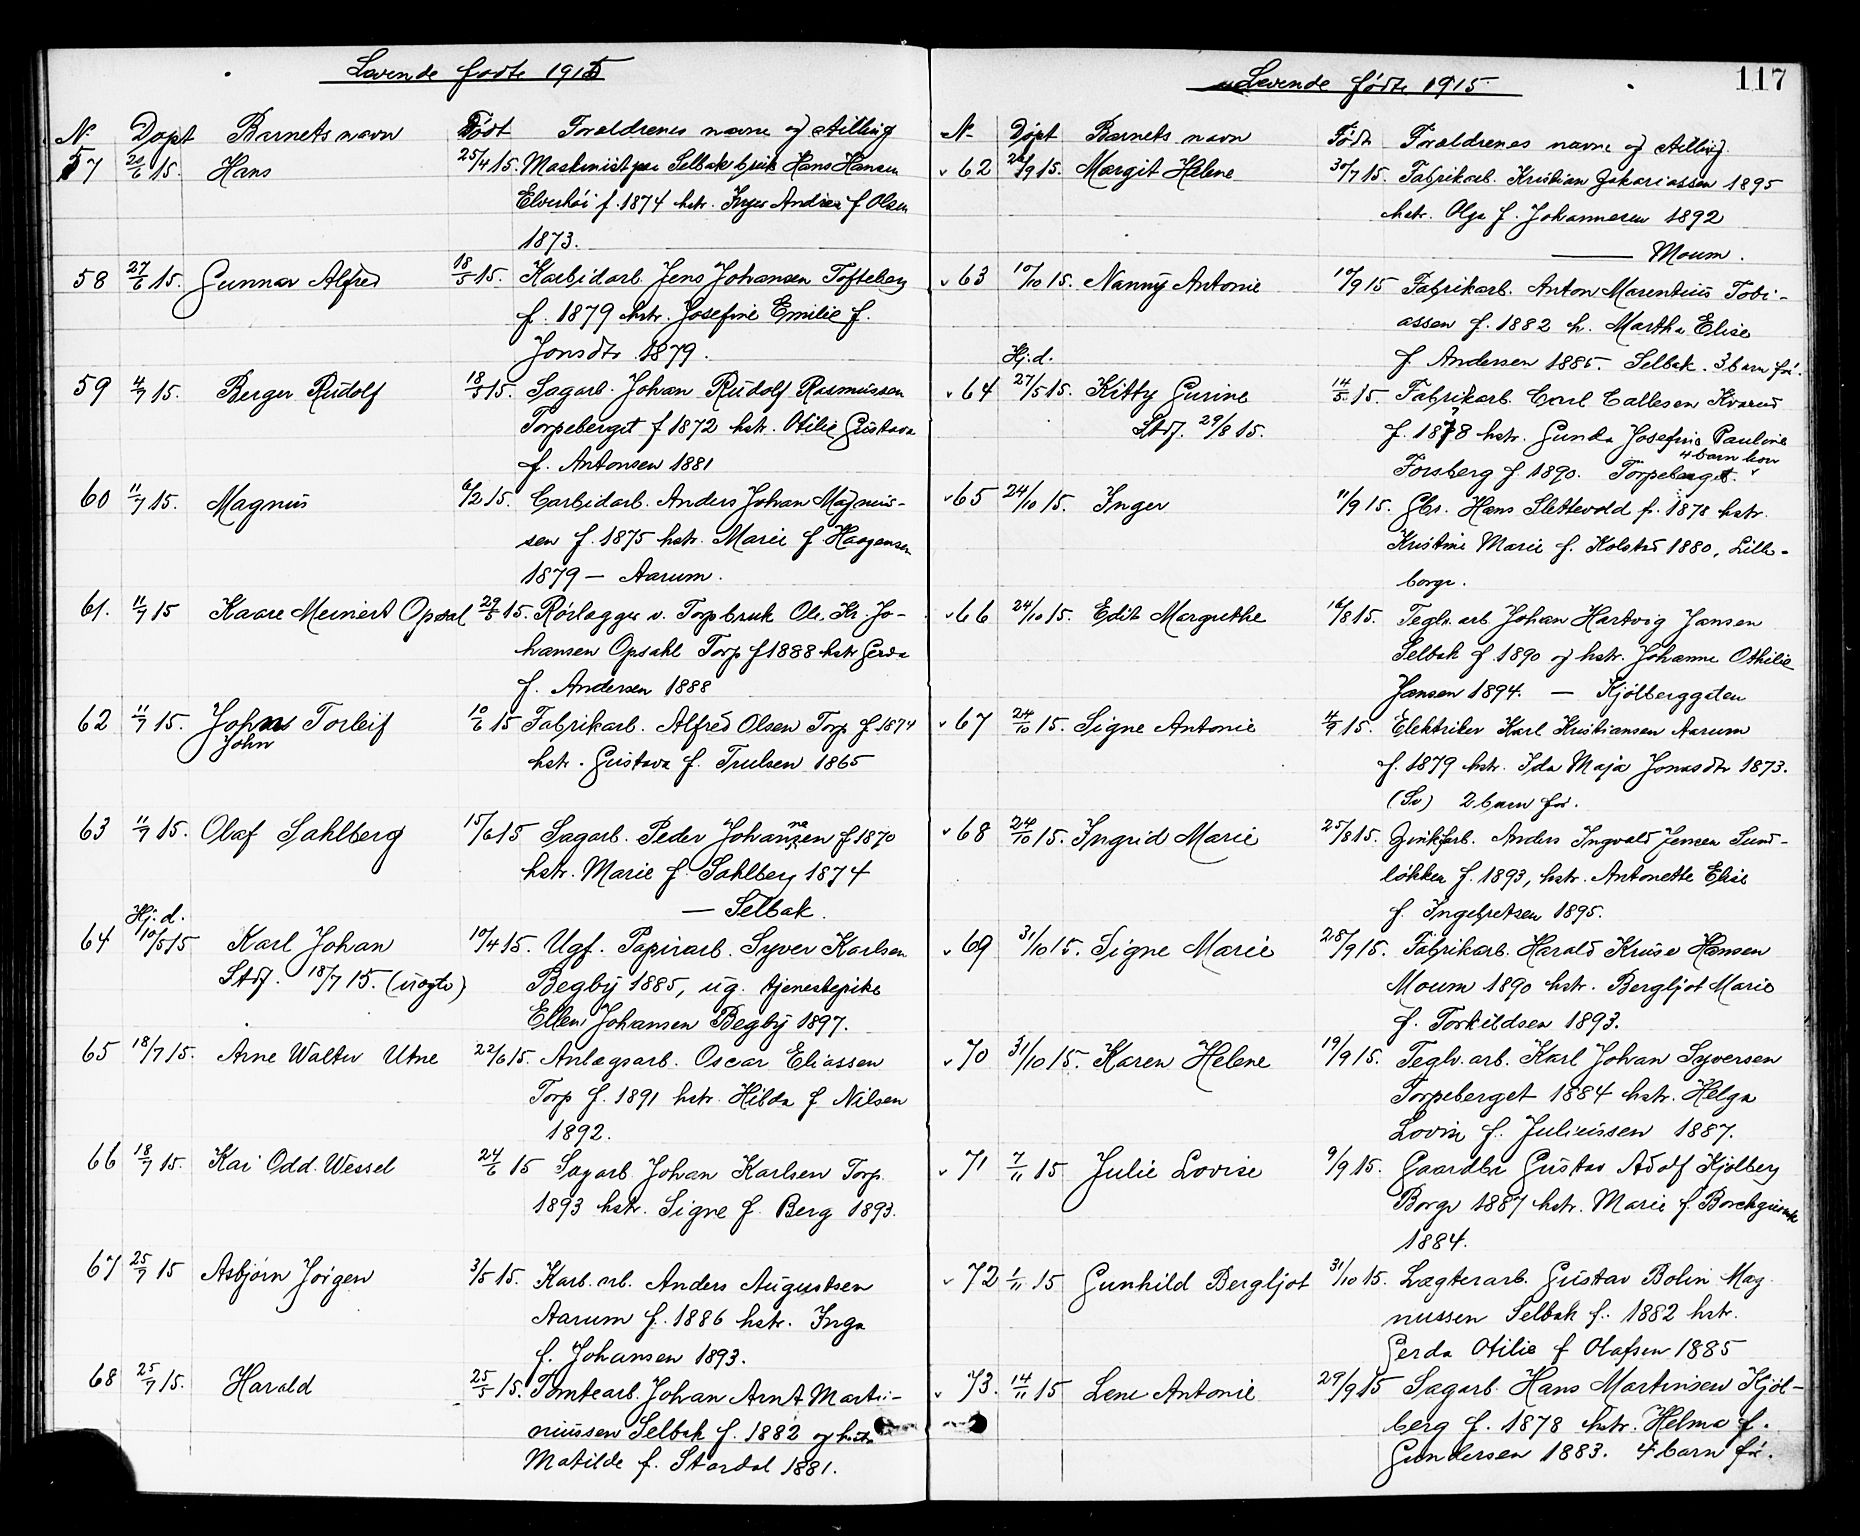 Levende fødte 1915
N. Døpt Barnets navn Født Forældrenes navne og stilling
57 20/6 15. Hans 25/4 15. Maskinist paa Selbak bruk Hans Hansen
Elverhöi f. 1874 hstr. Inger Andrea f. Olsen
1873.
58 27/6 15. Gunnar Alfred 18/5 15. Karbidarb. Jens Johansen Tofteberg
f. 1879 hstr. Josefine Emilie f.
Jonsdtr 1879.
59 4/7 15. Berger Rudolf 18/5 15. Sagarb. Johan Rudolf Rasmussen
Torpeberget f 1872 hstr. Otilie Gustava
f. Antonsen 1881
60 11/7 15. Magnus 6/2 15. Carbidarb. Anders Johan Magnus-
sen f. 1875 hstr. Marie f. Haagensen
1879 — Aarum.
61. 11/7 15 Kaare Meinert Opsal 29/5 15. Rörlægger v. Torp bruk Ole Kr. Jo-
hansen Opsahl Torp f 1888 hstr Gerda
f. Andersen 1888
62 11/7 15. Johns Torleif 10/6 15 Fabrikarb. Alfred Olsen Torp f 1874
John
hstr. Gustava f. Trulsen 1865
63 11/7 15. Olaf Sahlberg 15/6 15 Sagarb. Peder Johannesen f 1870
hstr. Marie f. Sahlberg 1874
— Selbak.
Hj. d.
64 10/5 15 Karl Johan 10/4 15. Ugf. Papirarb. Syver Karlsen
Stdf. 18/7 15. (uægte) Begby 1885, ug. tjenestepike
Ellen Johansen Begby 1897.
65 18/7 15. Arne Walter Utne 22/6 15. Anlægsarb. Oscar Eliassen
Torp f. 1891 hstr. Hilda f. Nilsen
1892.
66 18/7 15. Kai Odd Wessel 24/6 15 Sagarb Johan Karlsen Torp
1893 hstr. Signe f. Berg 1893.
67 25/7 15 Asbjørn Jørgen 3/5 15. Karb. arb. Anders Augustsen
Aarum f. 1886 hstr. Inga
f. Johansen 1893.
68 25/7 15. Harald 25/5 15. Tomtearb. Johan Arnt Marti-
niussen Selbak f. 1882 og hstr
Matilde f. Stordal 1881.
117
Levende fødte 1915.
N. Døpt Barnets navn Födt Forældrenes navne og stilling.
v 62 26/9 15. Margit Helene 30/7 15. Fabrikarb. Kristian Zakariassen 1895
hstr. Olga f. Johannesen 1892
— Moum.
v 63 10/10 15. Nanny Antonie 10/9 15 Fabrikarb. Anton Marentius Tobi-
assen f. 1882 h. Martha Elise
f. Andersen 1885. Selbak. 3 barn før
Hj. d.
v 64 27/5 15. Kitty Gurine 14/5 15. Fabrikarb. Carl Callesen Kvarud
Stdf. 29/8 15. f. 1878 hstr. Gunda Josefine Pauline
4 barn
Forsberg f 1890. Torpeberget.
v 65 24/10 15. Inger 11/9 15. Gbr. Hans Slettevold f. 1878 hstr.
Kristine Marie f. Kolstad 1880, Lille-
borge.
v 66 24/10 15. Edit Margrethe 16/8 15. Teglv. arb Johan Hartvig Jansen
Selbak f. 1890 og hstr. Johanne Othilie
Jansen 1894. — Kjölberggaten
v 67 24/10 15. Signe Antonie 4/9 15. Elektriker Karl Kristiansen Aarum
f. 1879 hstr. Ida Maja Jonasdtr 1873.
(Sv) 2 barn før.
v 68 24/10 15. Ingrid Marie 25/8 15. Zinkfarb. Anders Ingvald Jensen Sund-
løkken f. 1893, hstr. Antonette Elise
f. Ingebretsen 1895.
v 69 31/10 15. Signe Marie 28/9 15. Fabrikarb. Harald Kruse Hansen
Moum 1890 hstr. Bergljot Marie
f. Torkildsen 1893.
v 70 31/10 15. Karen Helene 19/9 15. Teglv. arb. Karl Johan Syversen
Torpeberget 1884 hstr. Helga
Lovise f. Juliussen 1887.
v 71 7/11 15 Julie Lovise 9/9 15. Gaardbr Gustav Adolf Kjølberg
Borge 1887 hstr. Marie f. Borchgrevink
1884.
v 72 1/11 15 Gunhild Bergljot 31/10 15. Lægterarb. Gustav Bolin Mag
nussen Selbak f. 1882 hstr.
Gerda Otilie f Olafsen 1885
v 73. 14/11 15 Lene Antonie 29/9 15 Sagarb. Hans Martinsen Kjöl-
berg f. 1878 hstr. Helma f.
Gundersen 1883. 4 barn før.